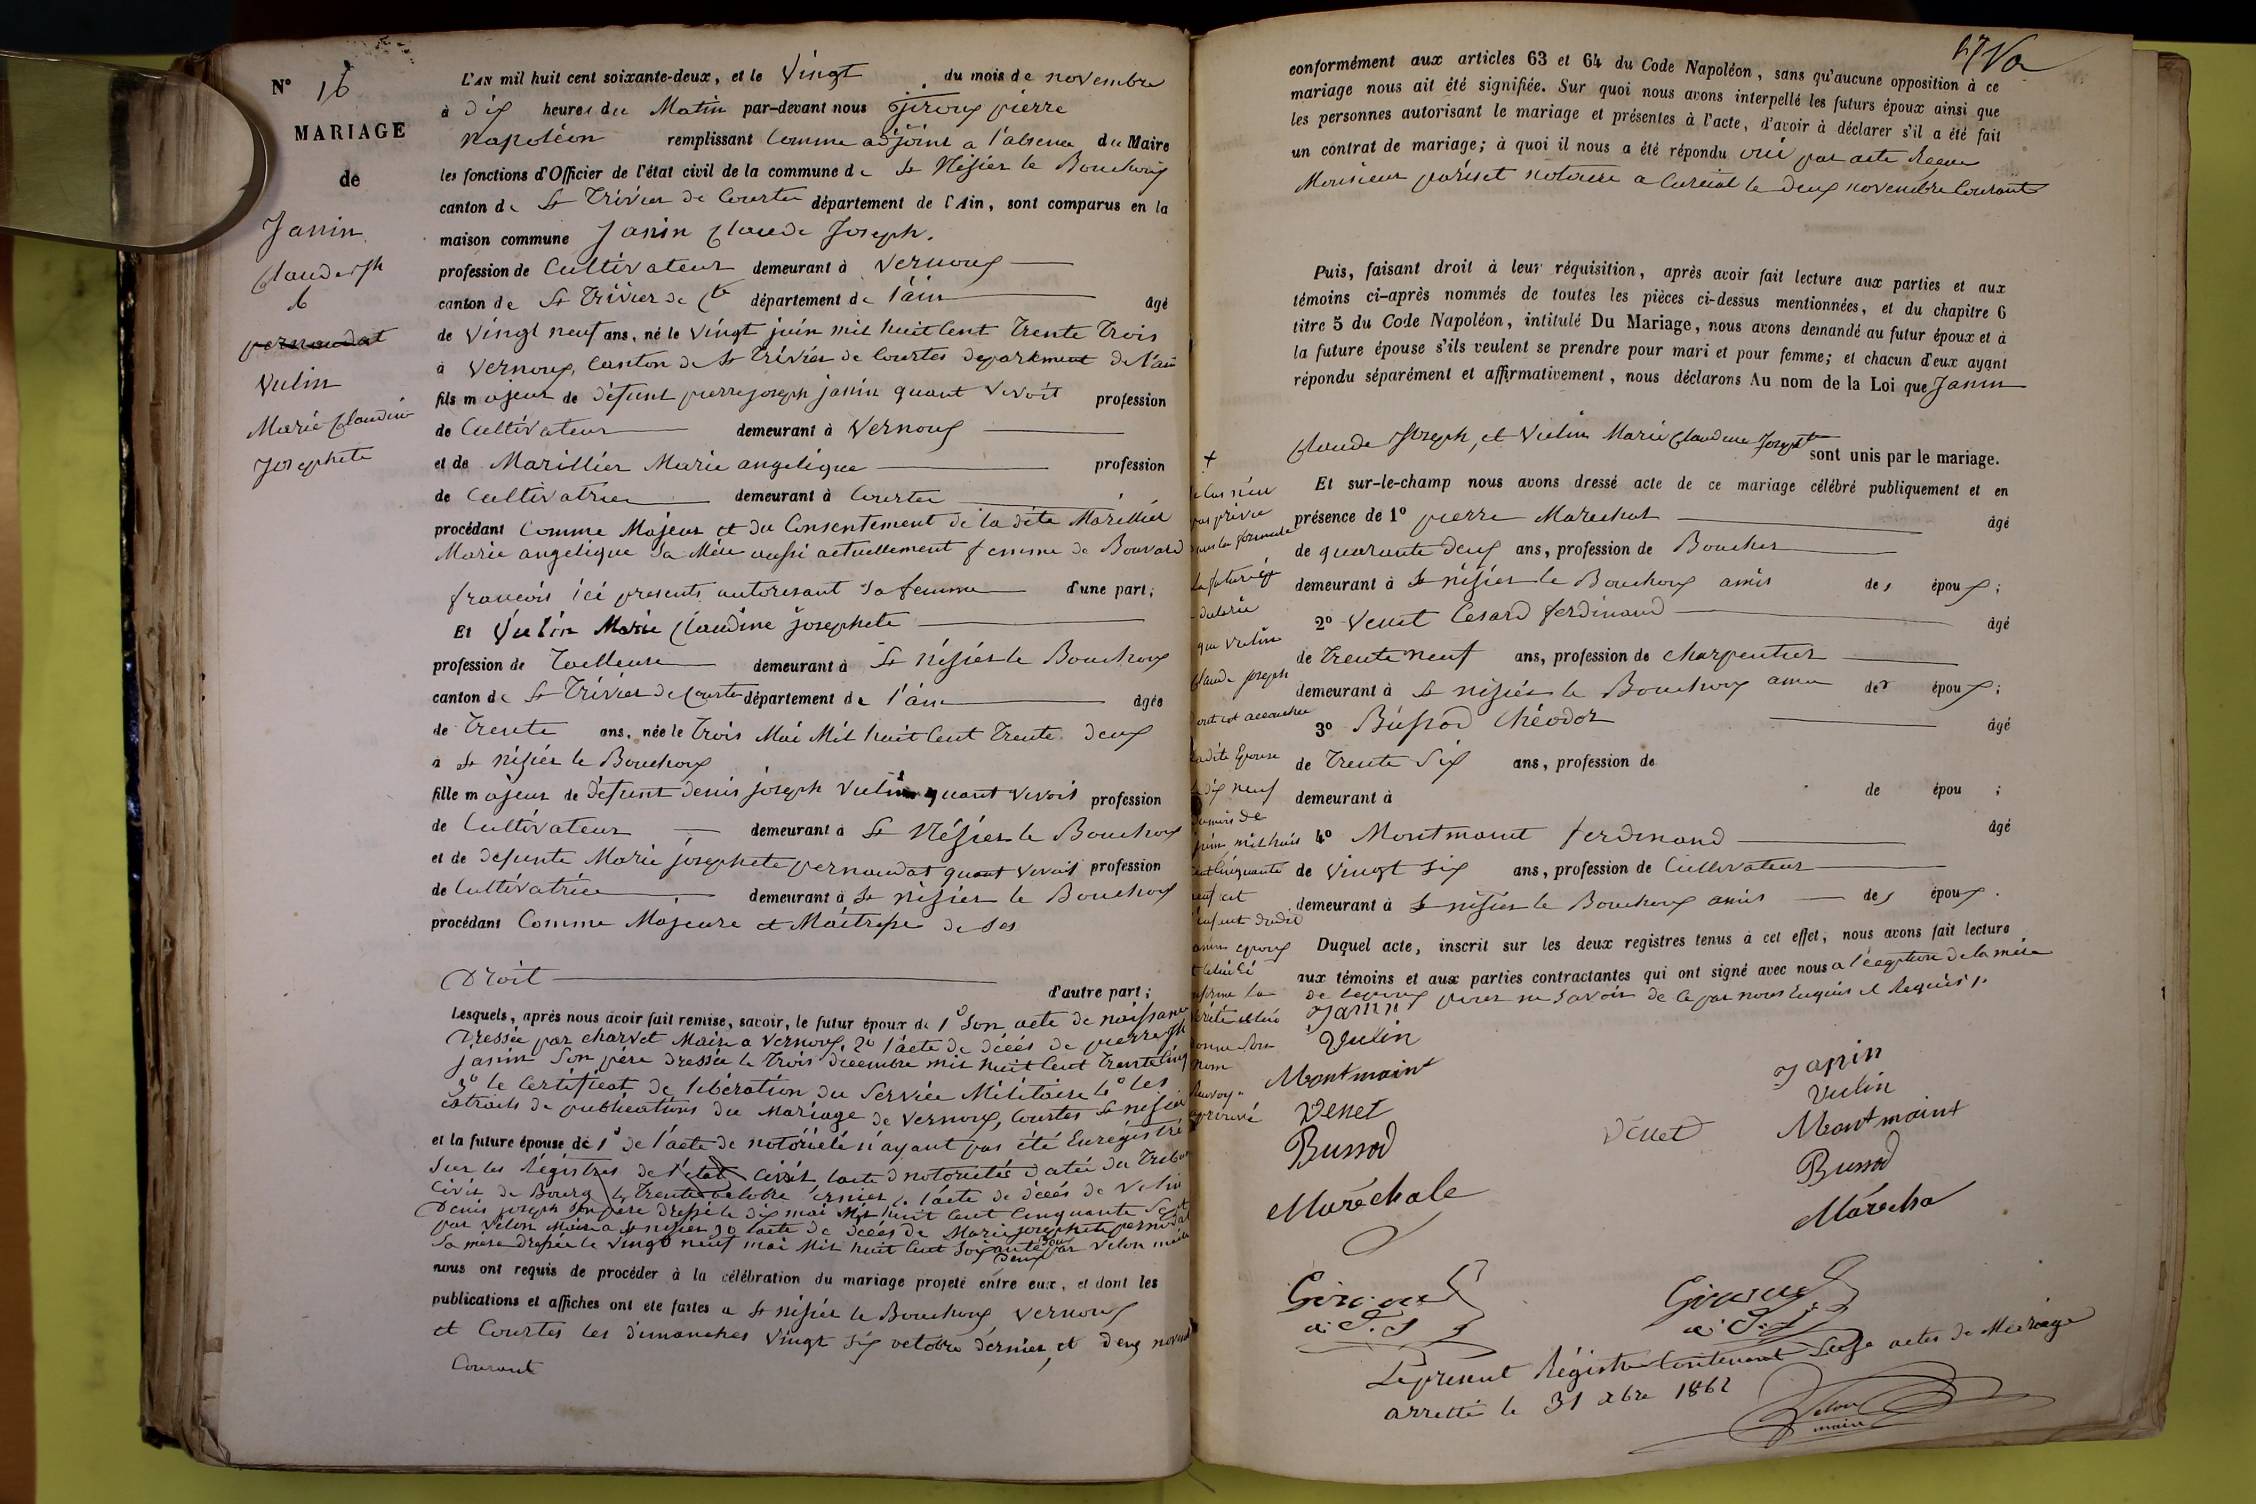 N° 16
MARIAGE
de
Janin
Claude Jh
&
pernaudat
Vulin
Marie Claudine
Josephete
L'AN mil huit cent soixante-deux, et le Vingt du mois de novembre
à dix heures du Matin par-devant nous Giroux pierre
Napoléon remplissant Comme adjoint a l'absence du Maire
les fonctions d'Officier de l'état civil de la commune de St Nisier le Bouchoux
canton de St Trivier de Courtes département de l'Ain, sont comparus en la
maison commune Janin Claude Joseph.
profession de Cultivateur demeurant à Vernoux
canton de St Trivier de Ctes département de l'ain âgé
de Vingt neuf ans, né le Vingt juin mil huit Cent Trente Trois
à Vernoux, Canton de St Trivier de Courtes departement de l'ain
fils majeur de défunt pierre joseph janin quant Vivoit profession
de Cultivateur demeurant à Vernoux
et de Marillier Marie angelique profession
de Cultivatrice demeurant à Courtes
procédant Comme Majeur et du Consentement de la dite Marillier
Marie angelique Sa Mère aussi actuellement femme de Bouvard
françois ici presents autorisant Sa femme d'une part;
Et Vulin Marie Claudine josephete
profession de Tailleuse demeurant à St Nisier le Bouchoux
canton de St Trivier de Courtes département de l'ain âgée
de Trente ans, née le Trois Mai Mil huit Cent Trente deux
à St Nisier le Bouchoux
fille majeur de défunt denis joseph Vulin quant Vivoit profession
de Cultivateur demeurant à St Nisier le Bouchoux
et de defunte Marie josephete pernaudat quant Vivoit profession
de Cultivatrice demeurant à St Nisier le Bouchoux
procédant Comme Majeure et Maitresse de Ses
Droit d'autre part;
Lesquels, après nous avoir fait remise, savoir, le futur époux de 1° Son acte de naissance
Dressée par Charvet Maire a Vernoux, 2° l'acte de décés de pierre Jh
janin Son père dressée le Trois décembre mil huit Cent Trente Cinq
3° le Certificat de libération du Service Militaire 4° les
extraits de publications du Mariage de Vernoux, Courtes St nisier
et la future épouse de 1° de l'acte de notoriété n'ayant pas été Enregistré
Sur les Régistres de l'état Civil l'acte d notoriété datée du Tribun
Civil de Bourg le Trente octobre dernier 2° l'acte de décés de Vulin
Denis joseph Son père dressé le dix mai Mil huit Cent Cinquante Sept
par Velon Maire a St nisier 3° l'acte de décés de Marie josephete pernodat
Sa mère dressée le Vingt neuf mai Mil huit Cent Soixante deux par Velon maire
nous ont requis de procéder à la célébration du mariage projeté entre eux, et dont les
publications et affiches ont été faites a St nisier le Bouchoux Vernoux
et Courtes les dimanches Vingt Six octobre dernier, et deux novem
Courant
conformément aux articles 63 et 64 du Code Napoléon, sans qu'aucune opposition à ce
mariage nous ait été signifiée. Sur quoi nous avons interpellé les futurs époux ainsi que
les personnes autorisant le mariage et présentes à l'acte, d'avoir à déclarer s'il a été fait
un contrat de mariage; à quoi il nous a été répondu oui par acte Reçu
Monsieur pariset notaire a Curciat le deux novembre Courant
Puis, faisant droit à leur réquisition, après avoir fait lecture aux parties et aux
témoins ci-après nommés de toutes les pièces ci-dessus mentionnées, et du chapitre 6
titre 5 du Code Napoléon, intitulé Du Mariage, nous avons demandé au futur époux et à
la future épouse s'ils veulent se prendre pour mari et pour femme; et chacun d'eux ayant
répondu séparément et affirmativement, nous déclarons Au nom de la Loi que Janin
Claude Joseph, et Vulin Marie Claudine Josephte sont unis par le mariage.
Et sur-le-champ nous avons dressé acte de ce mariage célébré publiquement et en
présence de 1° pierre Marechal âgé
de quarante deux ans, profession de Boucher
demeurant à St nisier le Bouchoux amis des époux;
2° Venet Cesard ferdinand âgé
de Trente neuf ans, profession de Charpentier
demeurant à St nisier le Bouchoux amis des époux;
3° Bussod Théodor âgé
de Trente Six ans, profession de
demeurant à de épou ;
4° Montmaint ferdinand âgé
de Vingt Six ans, profession de Cultivateur
demeurant à St nisier le Bouchoux amis des époux.
Duquel acte, inscrit sur les deux registres tenus à cet effet, nous avons fait lecture
aux témoins et aux parties contractantes qui ont signé avec nous a l'éxeption de la mère
de l'epoux pour ne Savoir de ce par nous Enquis et Requis.
+
la future ép
declarée
que Vulin
Claude joseph
dont est accouchée
ladite Epouse
le dix neuf
du mois de
juin mil huit
Cent Cinquante
neuf est
l'enfant dudit
janin epoux
Renvoy
approuvé
Janin
Vulin
Montmaint
Venet
Bussod
Maréchale
Giroux
a. J. S
Janin
Vulin
Venet
Montmaint
Bussod
Maréchal
Giroux
a. J. S
Le présent Régistre Contenant Seize actes de Mariage
arretté le 31 xbre 1862
Velon
maire